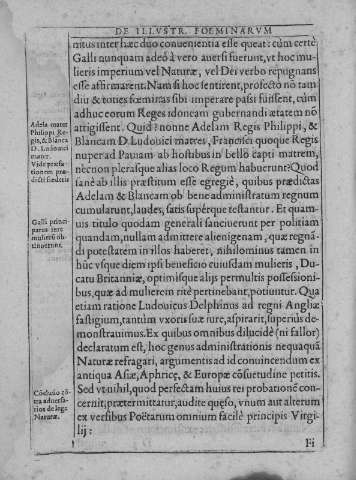 DE ILLVSTR. FOEMINARVM
mus inter hæc duo conuenientia esse queat: cùm certè
Galli nunquam adeò à vero auersi fuerunt, vt hoc mu-
lieris imperium vel Naturæ, vel Dei verbo repugnans
esse affirmarent. Nam si hoc sentirent, profectò nō tam
diu & toties fœminas sibi imperare passi fuissent, cùm
adhuc eorum Reges idoneam gubernandi ætatem nō
attigissent. Quid? nonne Adelam Regis Philippi, &
Blancam D. Ludouici matres, Francisci quoque Regis
nuper ad Pauiam ab hostibus in bello capti matrem,
necnon plerasque alias loco Regum habuerunt? Quod
sanè ab illis præstitum esse egregiè, quibus prædictas
Adelam & Blancam ob bene administratum regnum
cumularunt, laudes, satis supérque testantur. Et quam-
uis titulo quodam generali sanciuerunt per politiam
quandam, nullam admittere alienigenam, quæ regnā-
di potestatem in illos haberet, nihilominus tamen in
hūc vsque diem ipsi beneficio cuiusdam mulieris, Du-
catu Britanniæ, optimísque alijs permultis possessioni-
bus, quæ ad mulierem ritè pertinebant, potiuntur. Qua
etiam ratione Ludouicus Delphinus ad regni Angliæ
fastigium, tantùm vxoris suæ iure, aspirarit, superiùs de-
monstrauimus. Ex quibus omnibus dilucidè (ni fallor)
declaratum est, hoc genus administrationis nequaquā
Naturæ refragari, argumentis ad id conuincendum ex
antiqua Asiæ, Aphricę, & Europæ cōsuetudine petitis.
Sed vt nihil, quod perfectam huius rei probationē con-
cernit, prætermittatur, audite quęso, vnum aut alterum
ex versibus Poëtarum omnium facilè principis Virgi-
lij:
Fi
Adela mater
Philippi Re-
gis, & blanca
D. Ludouici
mater.
Vide præfa-
tionem præ-
dicti fœderis
Galli princi-
patus iure
mulierū ob-
tinuerunt.
Cōclusio cō-
tra aduersa-
rios de lege
Naturæ.